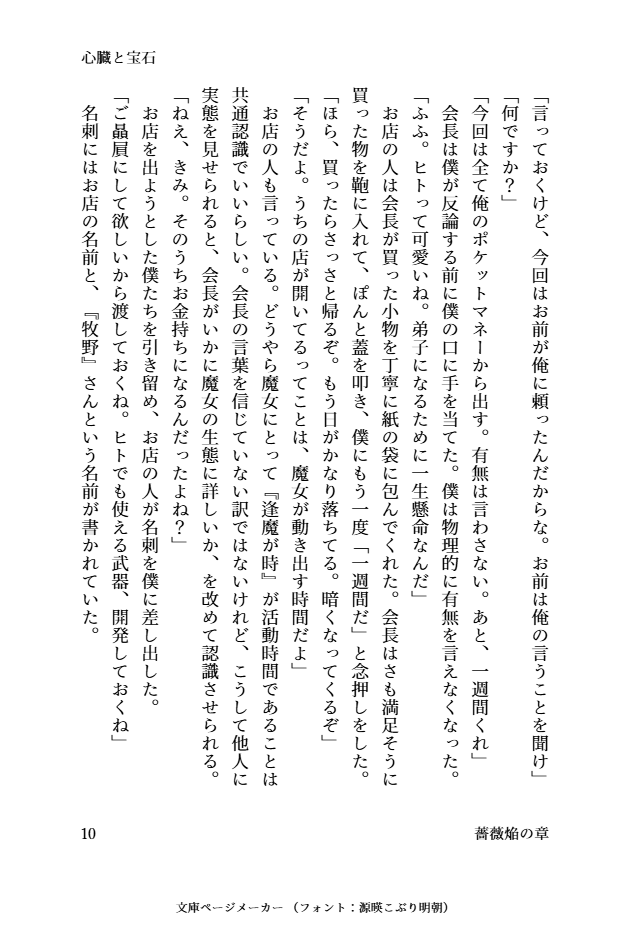 心臓と宝石
「言っておくけど、今回はお前が俺に頼ったんだからな。お前は俺の言うことを聞け」
「何ですか？」
「今回は全て俺のポケットマネーから出す。有無は言わさない。あと、一週間くれ」
会長は僕が反論する前に僕の口に手を当てた。僕は物理的に有無を言えなくなった。
「ふふ。ヒトって可愛いね。弟子になるために一生懸命なんだ」
お店の人は会長が買った小物を丁寧に紙の袋に包んでくれた。会長はさも満足そうに
買った物を鞄に入れて、ぽんと蓋を叩き、僕にもう一度「一週間だ」と念押しをした。
「ほら、買ったらさっさと帰るぞ。もう日がかなり落ちてる。暗くなってくるぞ」
「そうだよ。うちの店が開いてるってことは、魔女が動き出す時間だよ」
お店の人も言っている。どうやら魔女にとって『逢魔が時』が活動時間であることは
共通認識でいいらしい。会長の言葉を信じていない訳ではないけれど、こうして他人に
実態を見せられると、会長がいかに魔女の生態に詳しいか、を改めて認識させられる。
「ねえ、きみ。そのうちお金持ちになるんだったよね？」
お店を出ようとした僕たちを引き留め、お店の人が名刺を僕に差し出した。
「ご贔屓にして欲しいから渡しておくね。ヒトでも使える武器、開発しておくね」
名刺にはお店の名前と、『牧野』さんという名前が書かれていた。
薔薇焔の章
10
文庫ページメーカー（フォント：源暎こぶり明朝）